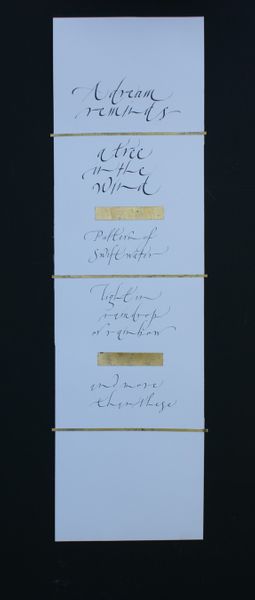 A dream
reminds
a tree
in the
wind
Pattern of
Swift water
Light in
raindrop
or rainbow
and more
than these